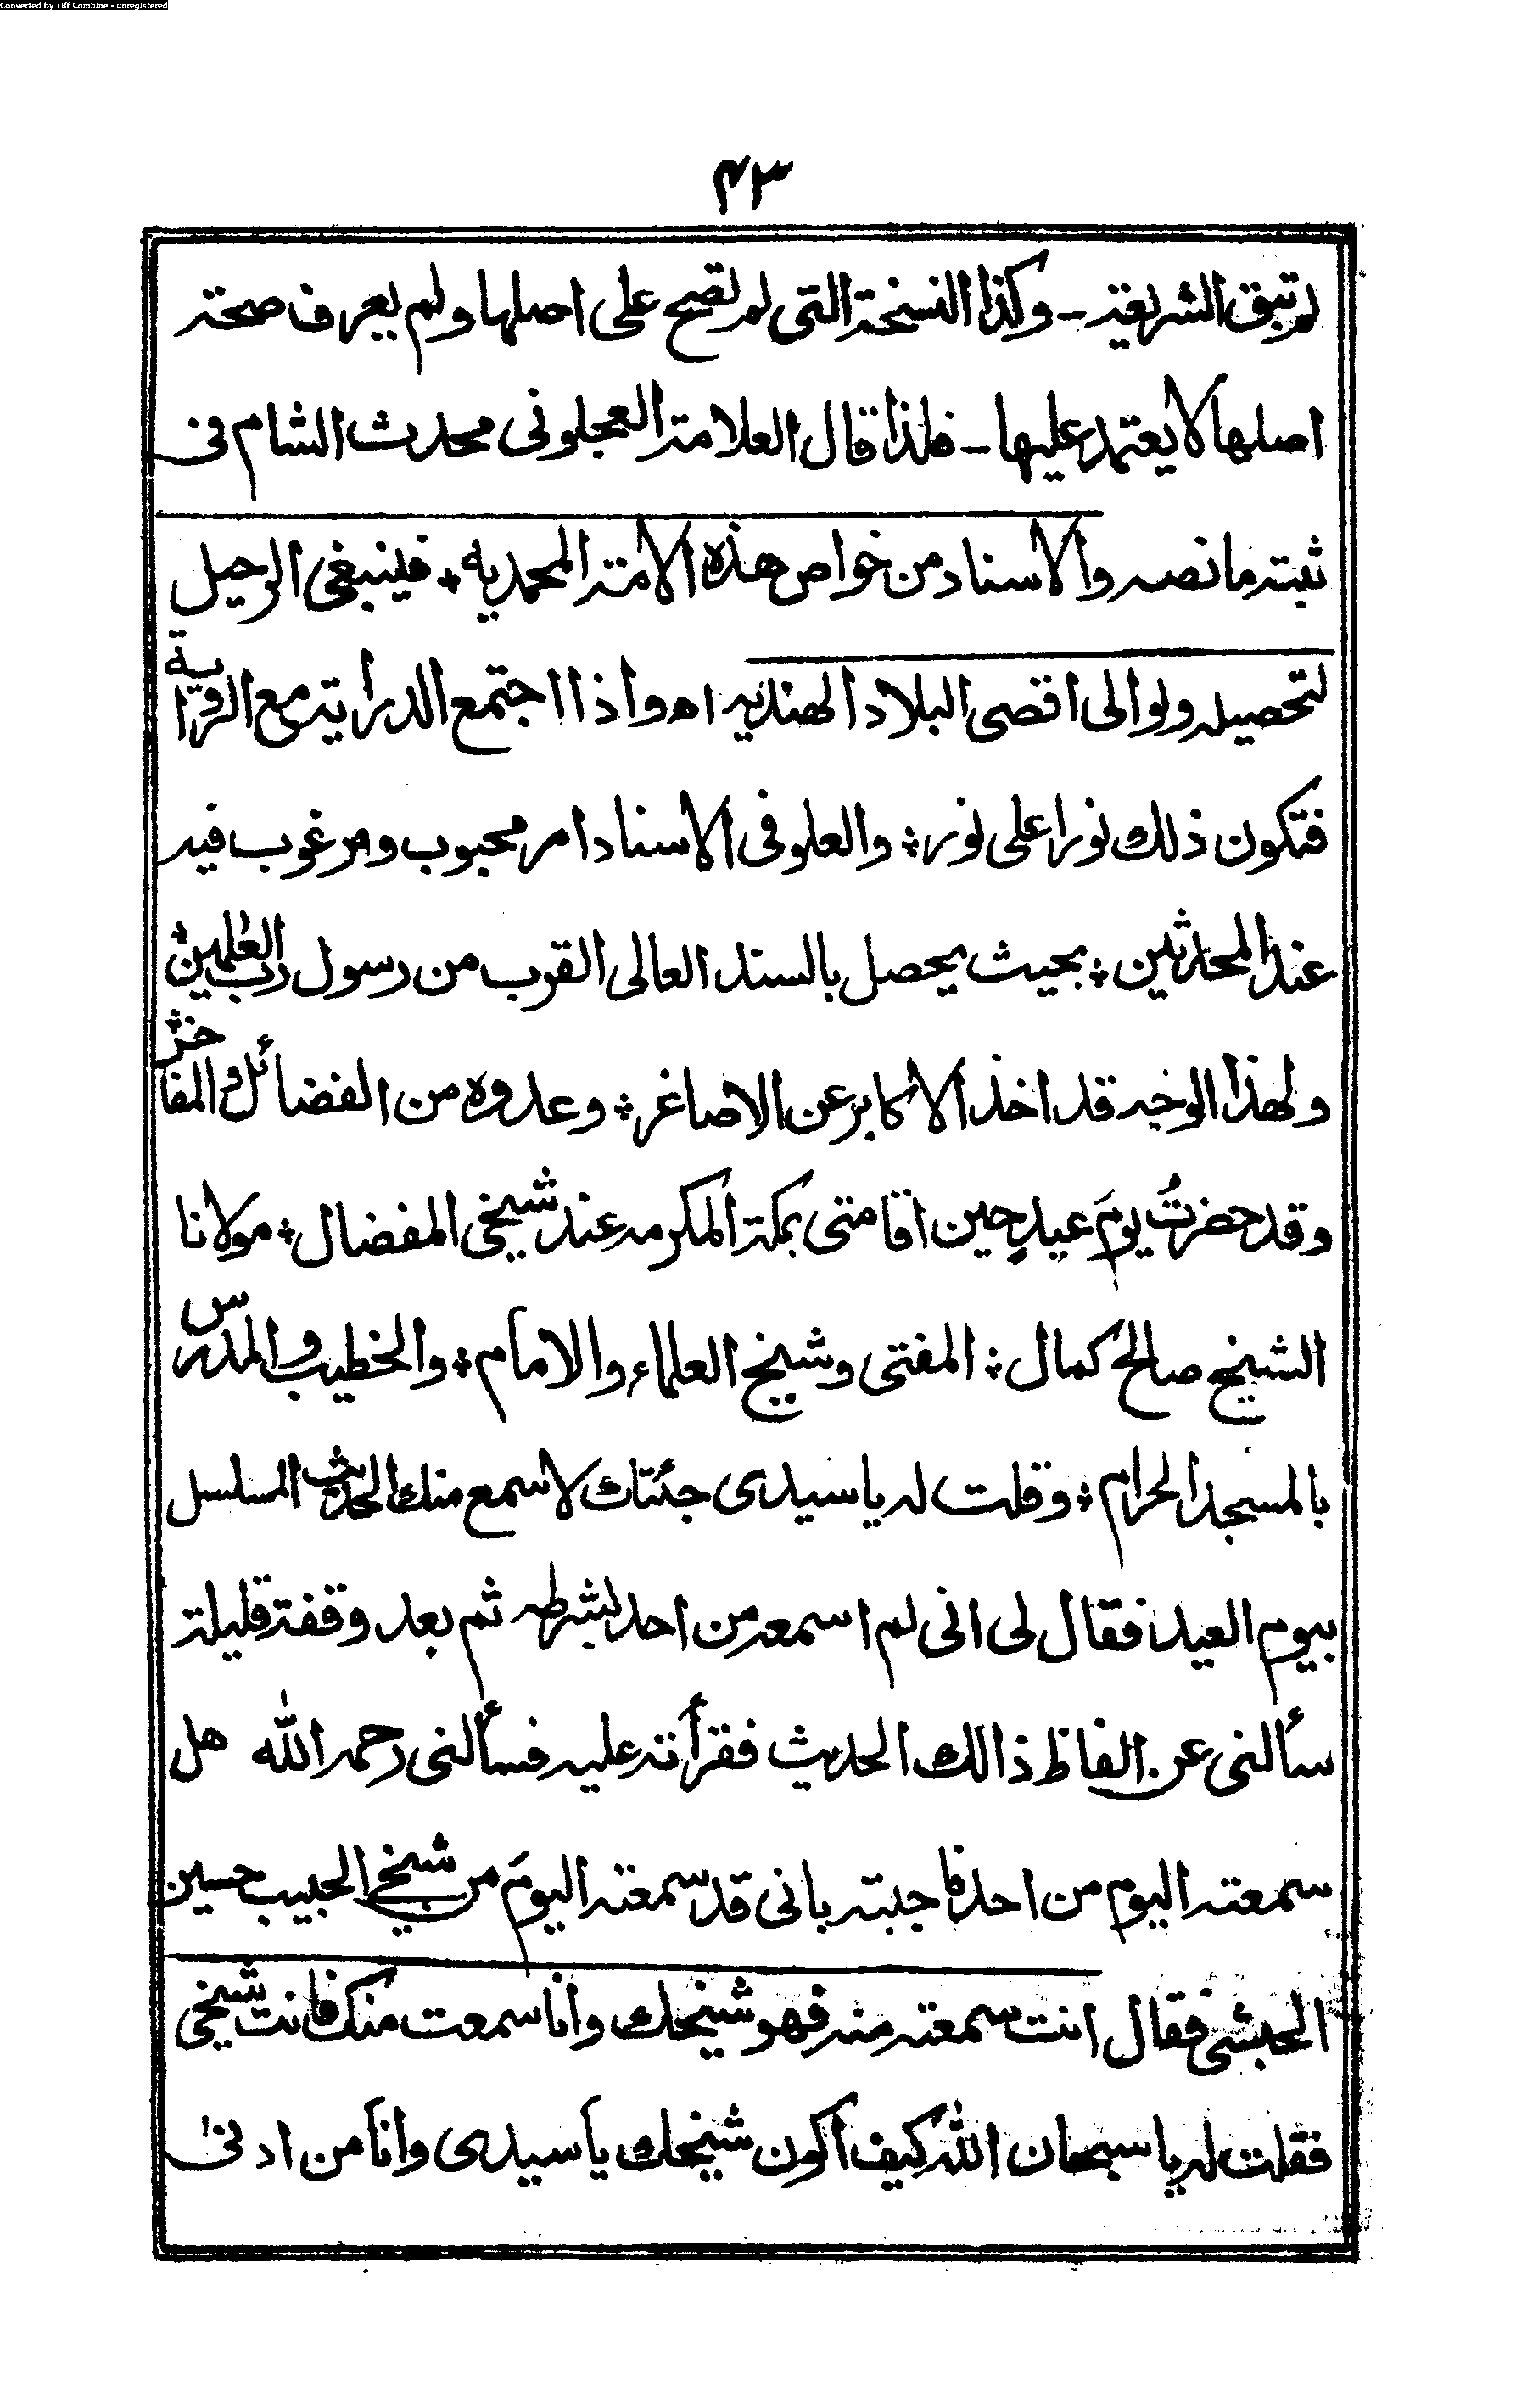 Converted by Tiff Combine - unregistered
۴۳
لم تبق الشريعة - وكذا النسخة التى لم تصح على اصلها ولم يعرف صحة
اصلها لا يعتمد عليها - فلذا قال العلامة العجلونى محدث الشام فى
ثبته ما نصه والاسناد من خواص هذه الامة المحمديه ٭ فينبغى الرحيل
لتحصيله ولو الى اقصى البلاد الهنديه اه واذا اجتمع الدراية مع الرواية
فتكون ذلك نورا على نور ٭ والعلو فى الاسناد امر محبوب ومرغوب فيه
عند المحدثين ٭ بحيث يحصل بالسند العالى القرب من رسول رب العٰلمين ٭
ولهذا الوجه قد اخذ الاكابر عن الاصاغر ٭ وعدوه من الفضائل والمفاخر ٭
وقد حضرتُ يومَ عيدٍ حين اقامتى بمكة المكرمه عند شيخى المفضال ٭ مولانا
الشيخ صالح كمال ٭ المفتى وشيخ العلماء والامام ٭ والخطيب والمدرس
بالمسجد الحرام ٭ وقلت له يا سيدى جئتك لاسمع منك الحديث المسلسل
بيوم العيد فقال لى انى لم اسمعه من احد بشرطه ثم بعد وقفة قليلة
سألنى عن الفاظ ذالك الحديث فقرأته عليه فسألنى رحمه الله هل
سمعته اليوم من احد فاجبته بانى قد سمعته اليومَ من شيخى الحبيب حسين
الحبشى فقال انت سمعته منه فهو شيخك وانا سمعت منك فانت شيخى
فقلت له يا سبحان الله كيف اكون شيخك يا سيدى وانا من ادنىٰ